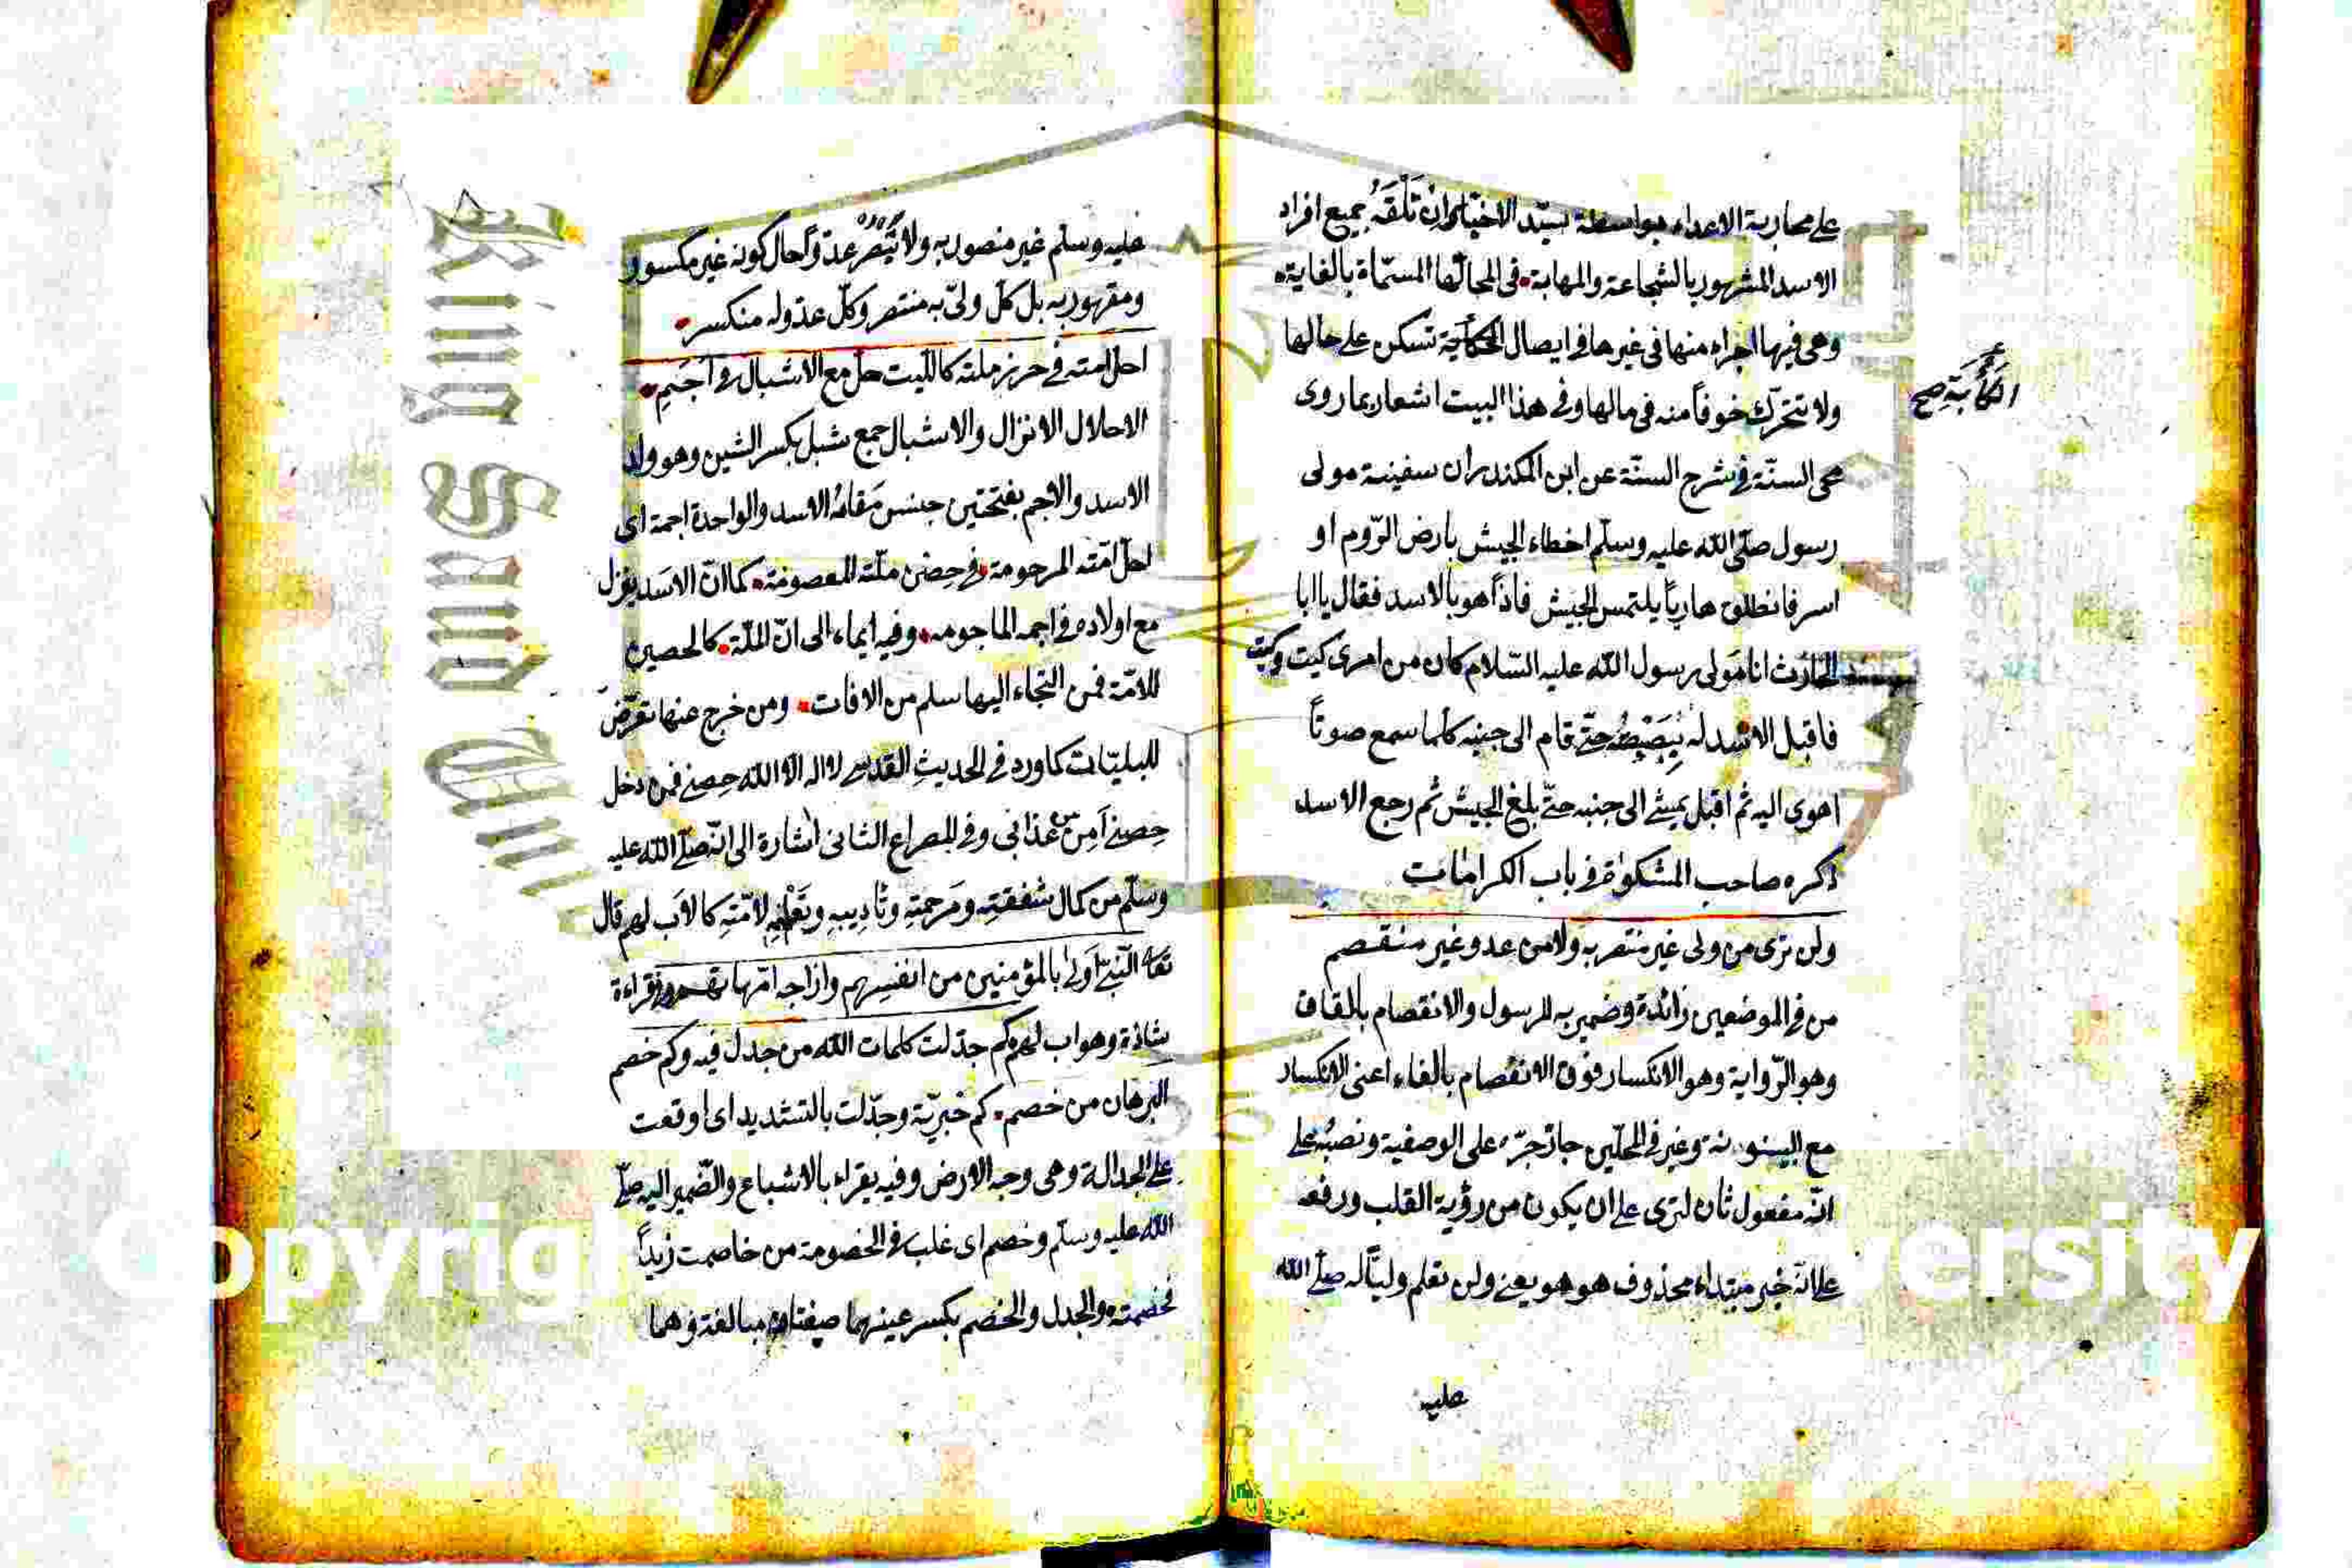 على محاربة الاعداء بواسطة سيّد الاخيار ان تَلْقَهُ جميع افراد
الاسد المشهور بالشجاعة والمهابة في المسمّاة بالغابة
وهى فيها اجراء منها فى غيرها فى ايصال تسكن على حالها
ولا تتحرّك خوفاً منه فى مالها وفى هذا البيت اشعار بما روى
محى السنّة فى شرح السنّة عن ابن المكندر ان سفينة مولى
رسول صلّى الله عليه وسلّم اخطاء الجيش بارض الرّوم او
اسر فانطلق هارباً يلتمس الجيش فاذاً هو بالاسد فقال يا ابا
الحارث انا مولى رسول الله عليه السّلام كان من امرى كيت وكيت
فاقبل الاسد له حتّى قام الى جنبه كلما سمع صوتاً
اهوى اليه ثم اقبل يمشى الى جنبه حتّى بلغ الجيش ثم رجع الاسد
ذكره صاحب المشكوة فى باب الكرامات
ولن ترى من ولى غير منتصر به ولا من عدو غير منقصم
من فى الموضعين زائدة وضمير به للرسول والانقصام بالقاف
وهو الرّواية وهو الانكسار فوق الانفصام بالفاء اعنى الانكسار
مع البينونة وغير فى المحلّين جاز جرّه على الوصفية ونصبُه على
انّه مفعول ثان لترى على ان يكون من رؤية القلب ورفعه
على انّه خبر مبتداء محذوف هو هو يعنى ولن تعلم وليّا له صلّى الله
عليه
الكآبة صح
عليه وسلّم غير منصور به ولا عدوّاً حال كونه غير مكسور
ومقهور به بل كل ولىّ به منتصر وكلّ عدو له منكسر
احلّ امته فى حرز ملته كالليث حلّ مع الاشبال فى اَجَمِ
الاحلال الانزال والاشبال جمع شبل بكسر الشين وهو ولد
الاسد والاجم بفتحتين جنس مَقامُ الاسد والواحدة اجمة اى
احلّ امّته المرحومة فى حِصْن ملّته المعصومة كما انّ الاسد ينزل
مع اولاده فى اجمه الماجومه وفيه ايماء الى انّ الملّة كالحصين
للامّة فمن التجاء اليها سلم من الافات ومن خرج عنها تعرّض
للبليّات كما ورد فى الحديث القدسى لا اله الا الله حِصنى فمن دخل
حِصنى اَمِن من عذابى وفى المصراع الثانى اشارة الى انّه صلّى الله عليه
وسلّم من كمال شفقتِه ومَرحمتِه وتأديبِه وتعليمِه لامّتِه كالاَب لهم قال
تعا النّبىّ اولى بالمؤمنين من انفسِهم وازاجه امّهاتهم وفى قراءة
شاذة وهو اب لهم كم جدّلت كلمات الله من جدل فيه وكم خصم
البرهان من خصم كم خبريّة وجدّلت بالتشديد اى اوقعت
على الجدالة وهى وجه الارض وفيه يقراء بالاشباع والضّمير اليه صلّى
الله عليه وسلّم وخصم اى غلب فى الخصومة من خاصمت زيداً
فخصمته والجدل والخصم بكسر عينهما صفتان مبالغة وهما
King Saud Uni
Copyrig
ersity